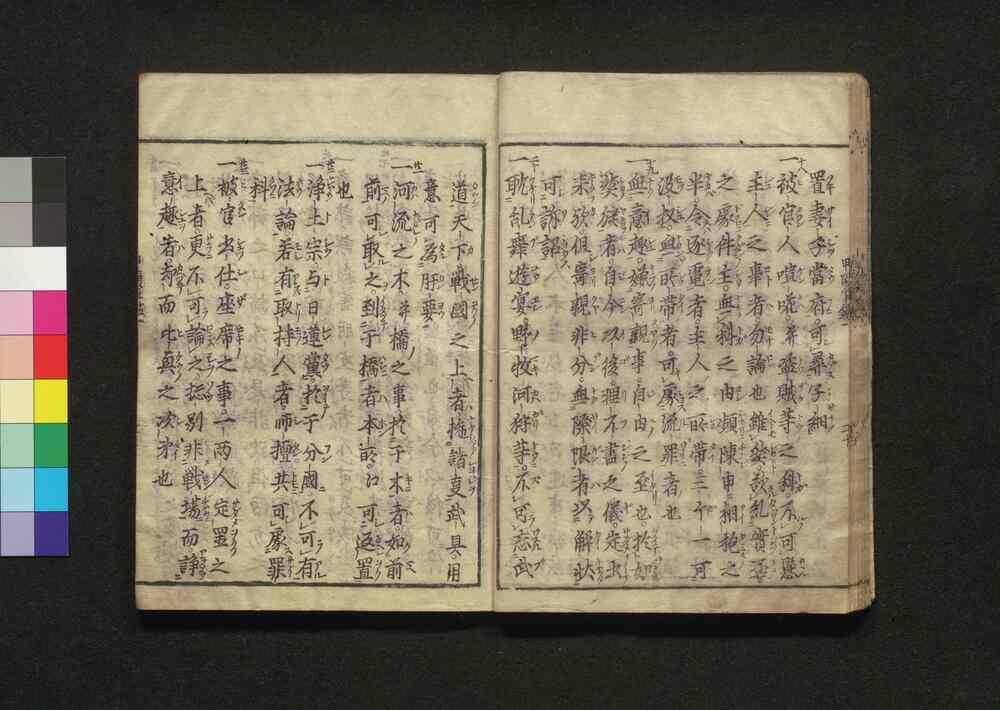 置妻子當府可尋子細
一被官人喧嘩并盗賊等之科不可懸
主人之事者勿論也雖然欲糺實否
之處件主無科之由頻陳申相抱之
半令逐電者主人之所帯三ケ一可
没收無所帯者可處流罪者也
一無意趣嫌寄親事自由之至也於如
然族者自今以後
未欤但寄親非分無際限者以解状
可訴詔
一耽乱舞遊宴野牧河狩等不可忘武
道天下戦國之上者抛諸叓武具用
意可為肝要
一河流之木并橋之事於于木者如前
前可取之到于橋者本所江可返置
也
一浄土宗与日蓮黨於于分國不可有
法論若有取持人者師擅共可處罪
科
一被官出仕座席之事一両人定置之
上者更不可論之抂別非戦場而諍
意趣者